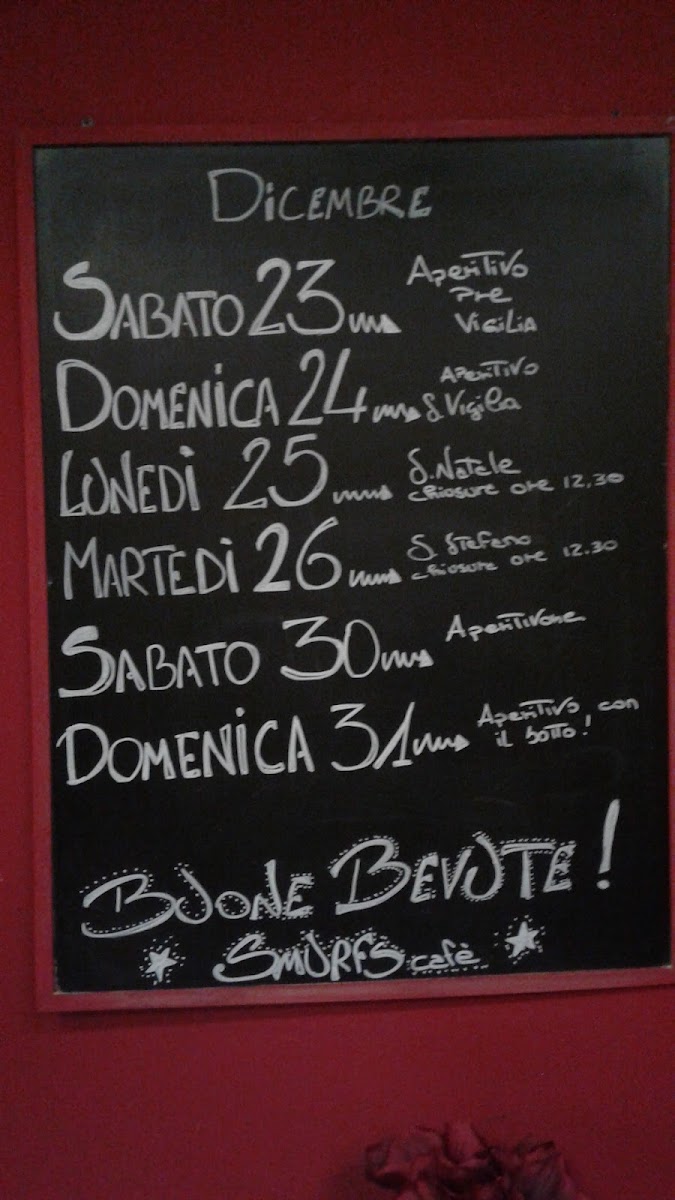 DiCEMBRE
SABATO 23
Aperitivo
Pre
ViGiLiA
DOMENiCA 24
APeritivo
S. Vigilia
LUNEDì 25
S. Natale
chiosure ore 12,30
MARTEDì 26
S. Stefano
chiosure ore 12.30
SABATO 30
Aperitivone
DOMENiCA 31
Aperitivo con
il botto!
BUONE BEVUTE!
SMURFS cafè